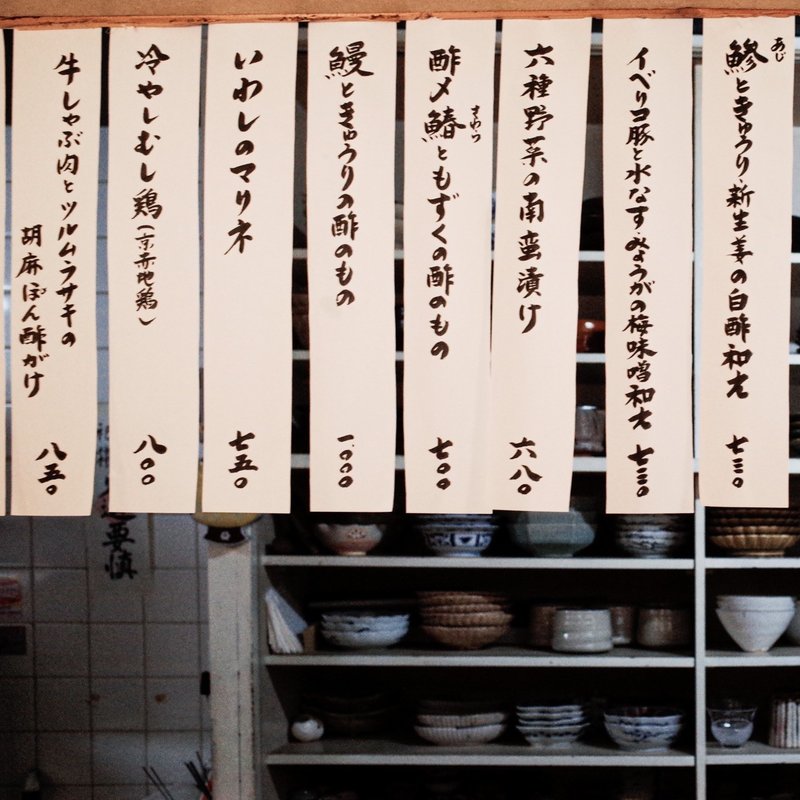 鯵ときゅうり・新生姜の白酢和え
あじ
七三〇
イベリコ豚と水なす・みょうがの梅味噌和え
七三〇
六種野菜の南蛮漬け
六八〇
酢〆鰆ともずくの酢のもの
さわら
七〇〇
鰻ときゅうりの酢のもの
一、〇〇〇
いわしのマリネ
七五〇
冷やしむし鶏(京赤地鶏)
八〇〇
牛しゃぶ肉とツルムラサキの
胡麻ぽん酢がけ
八五〇